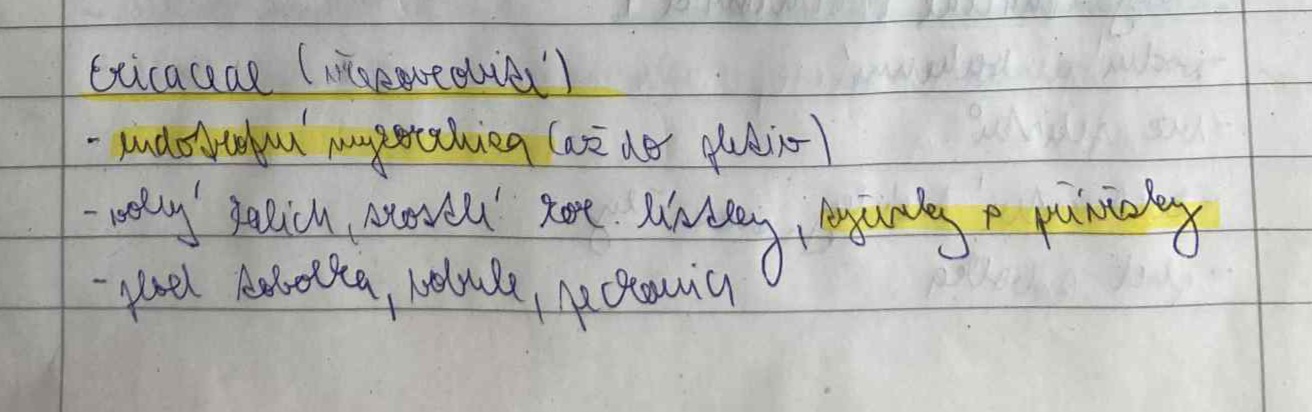 Ericaceae (vřesovcovité)
- endotrofní mycorrhiza (až do pletiv)
- volný kalich, srostlé kor. lístky, tyčinky s přívěsky
- plod tobolka, bobule, peckovice